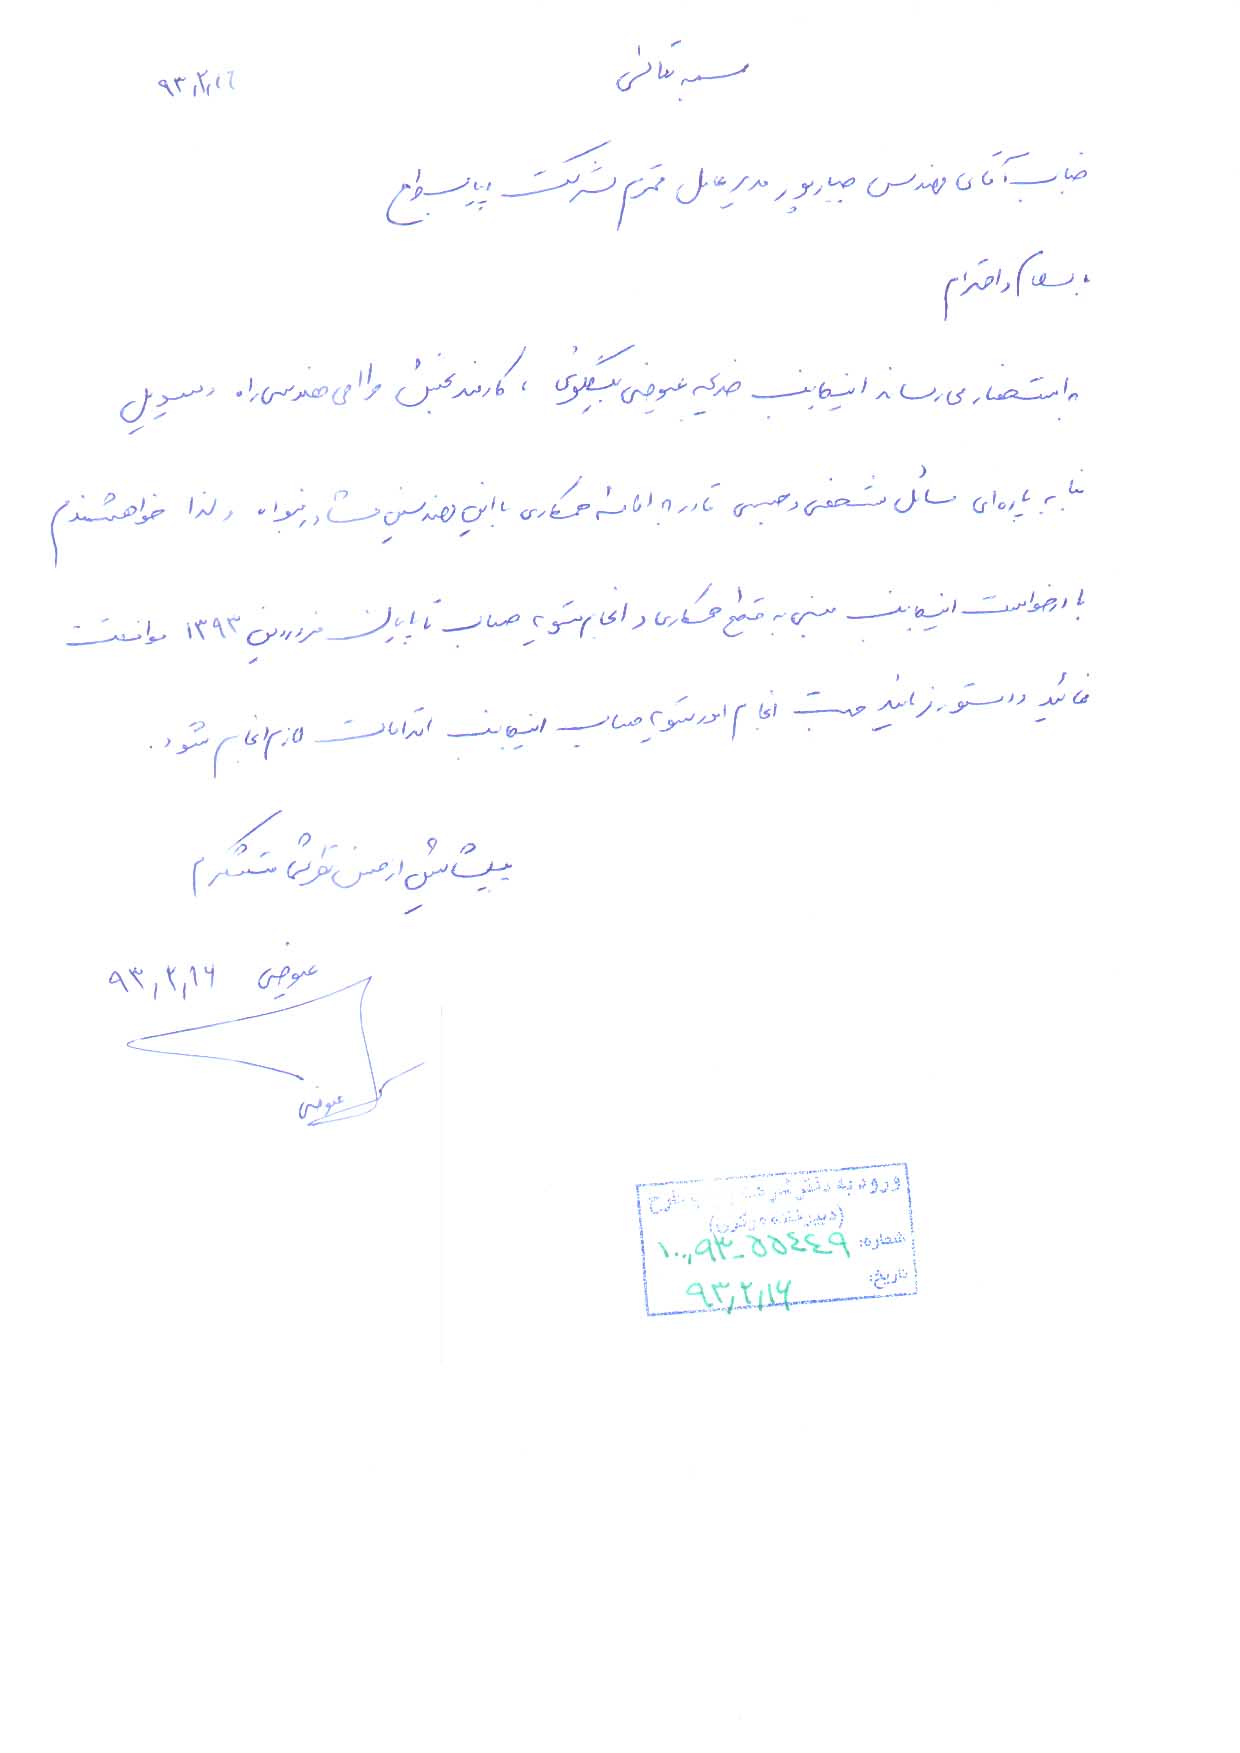 بسمه تعالی
۹۳٫۲٫۱۶
جناب آقای مهندس جبارپور مدیرعامل محترم شرکت
با سلام و احترام
به استحضار می رساند اینجانب خدیجه عیوضی ، کارمند بخش طراحی هندسی راه و
بنا به پاره‌ای مسائل شخصی و جسمی قادر به ادامه همکاری با این مهندسین مشاور نبوده و لذا خواهشمندم
با درخواست اینجانب مبنی به قطع همکاری و انجام تسویه حساب تا پایان فروردین ۱۳۹۳ موافقت
نمائید و دستور فرمائید جهت انجام امور تسویه حساب اینجانب اقدامات لازم انجام شود.
پیشاپیش از حسن نظر شما متشکرم
عیوضی ۹۳٫۲٫۱۶
عیوضی
ورود به دفتر طرح
(دبیرخانه مرکزی)
شماره: ۱۰۰٫۹۳-۵۵۴۴۹
تاریخ: ۹۳٫۲٫۱۶